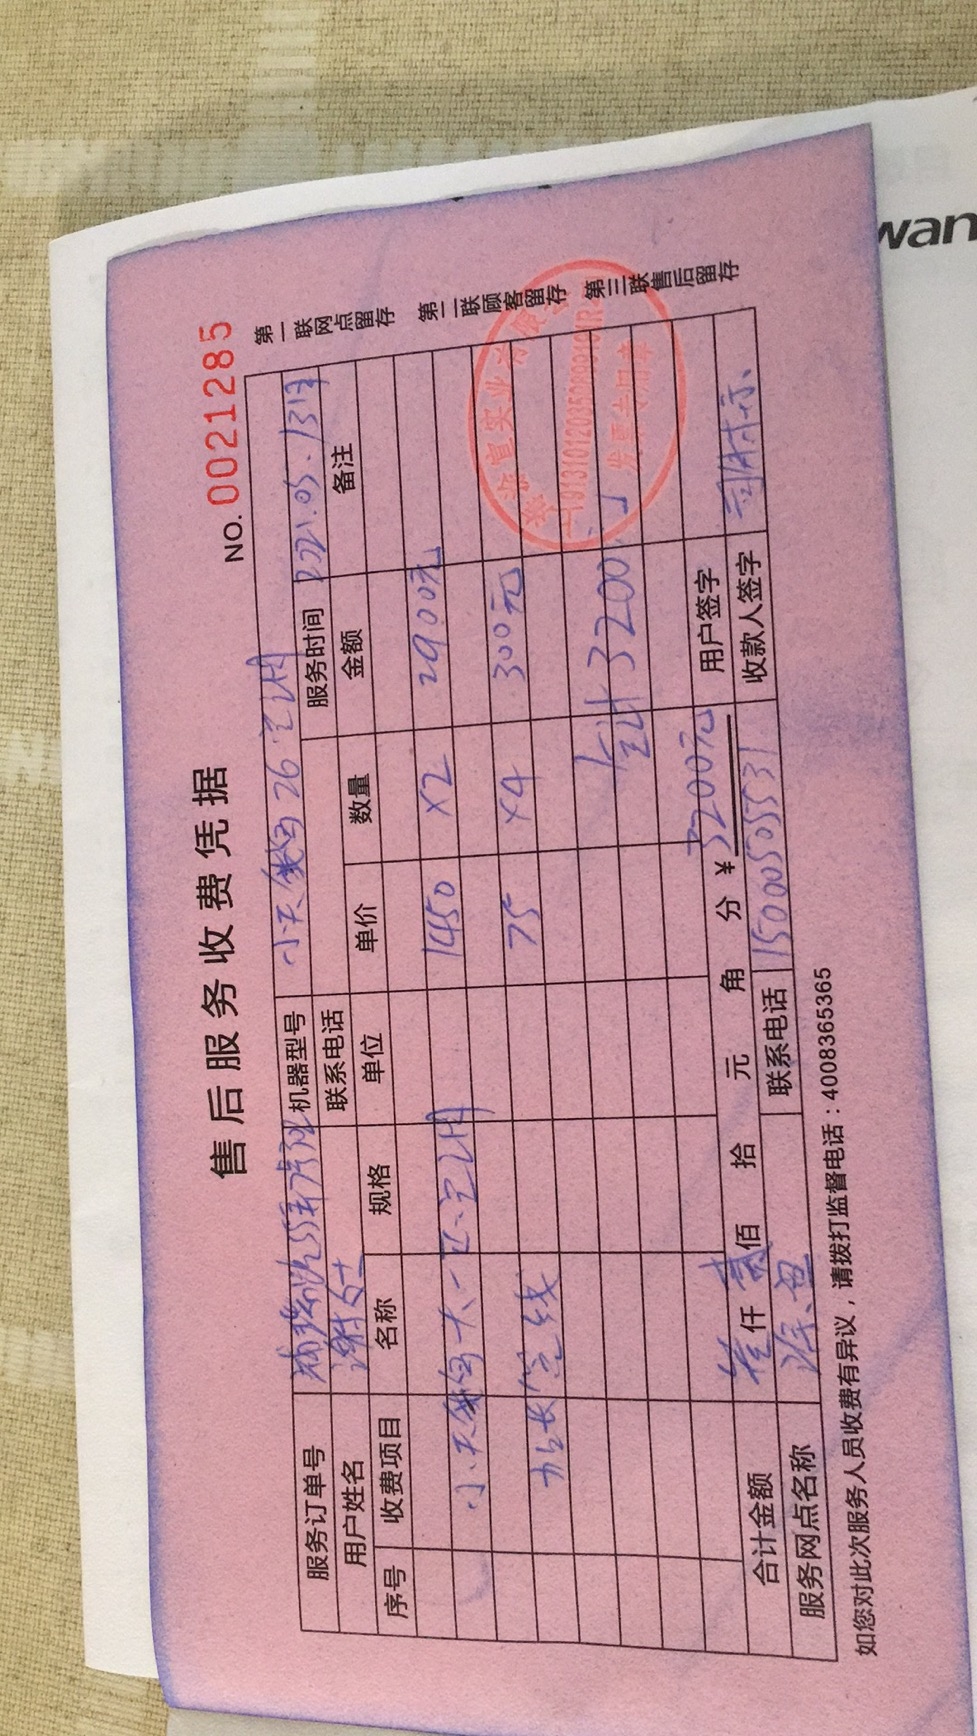 售后服务收费凭据
NO. 0021285
服务订单号 机器型号 小天鹅26空调
用户姓名 谢女士 联系电话 服务时间 2021.05.13日
序号 收费项目 名称 规格 单位 单价 数量 金额 备注
小天鹅大一匹空调 1450 ×2 2900元
加长管线 75 ×4 300元
合计 3200
合计金额 叁仟贰佰 拾 元 角 分 ¥ 3200元 用户签字
服务网点名称 联系电话 15000505531 收款人签字
如您对此次服务人员收费有异议，请拨打监督电话：4008365365
第一联网点留存 第二联顾客留存 第三联售后留存
发票专用章
wan